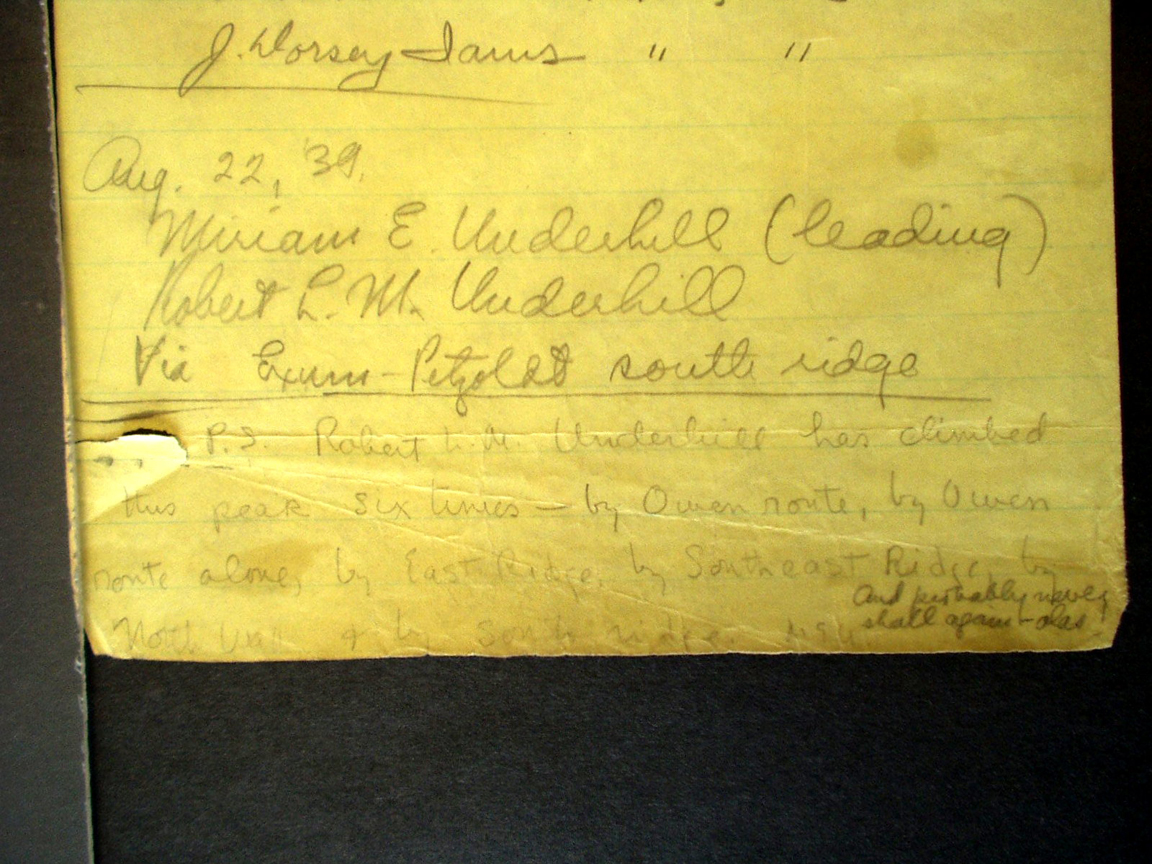 J. Dorsey Iams " "
Aug. 22, '39.
Miriam E. Underhill (leading)
Robert L. M. Underhill
Via Exum-Petzoldt south ridge
P.S. Robert L. M. Underhill has climbed
this peak six times — by Owen route, by Owen
route alone, by East Ridge, by Southeast Ridge, by
North Wall & by South ridge. MEU
And probably never
shall again - alas